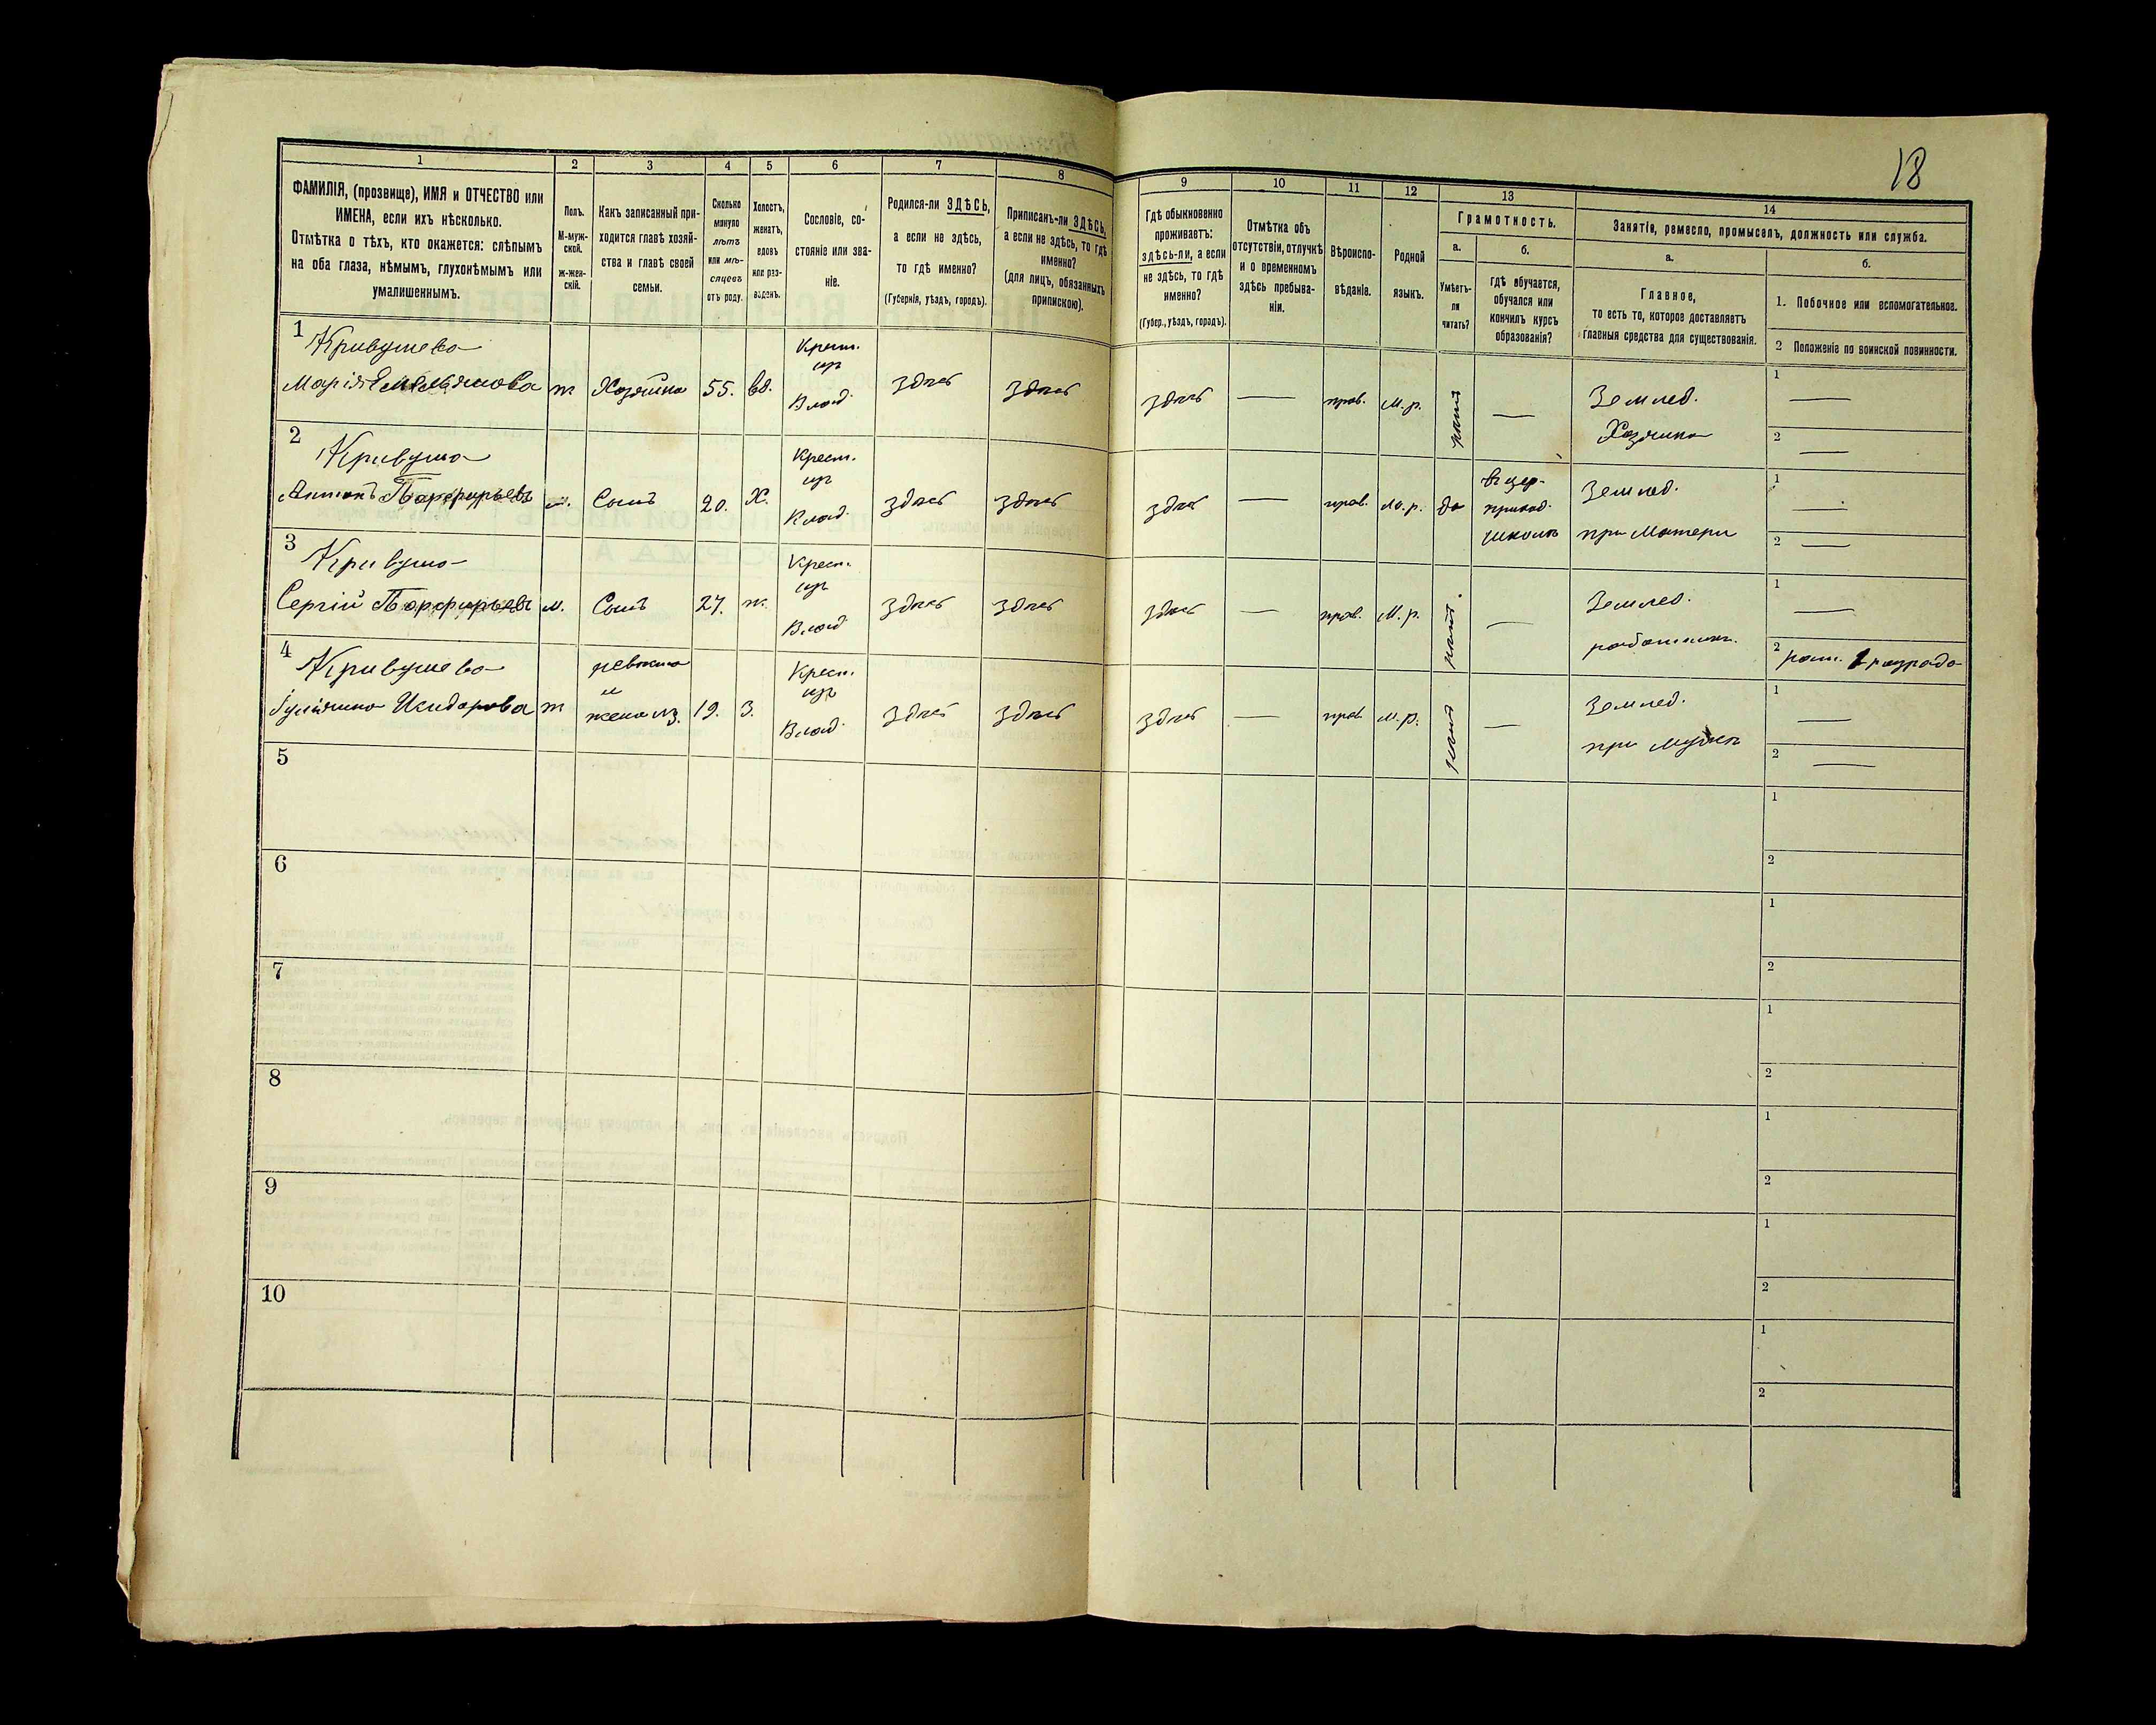 18
1
2
3
4
5
6
7
8
9
10
11
12
13
14
ФАМИЛІЯ, (прозвище), ИМЯ и ОТЧЕСТВО или
ИМЕНА, если ихъ нѣсколько.
Отмѣтка о тѣхъ, кто окажется: слѣпымъ
на оба глаза, нѣмымъ, глухонѣмымъ или
умалишеннымъ.
Полъ.
М-муж-
ской.
ж-жен-
скій.
Какъ записанный при-
ходится главѣ хозяй-
ства и главѣ своей
семьи.
Сколько
минуло
лѣтъ
или мѣ-
сяцевъ
отъ роду.
Холостъ,
женатъ,
вдовъ
или раз-
веденъ.
Сословіе, со-
стояніе или зва-
ніе.
Родился-ли ЗДѢСЬ,
а если не здѣсь,
то гдѣ именно?
(Губернія, уѣздъ, городъ).
Приписанъ-ли ЗДѢСЬ,
а если не здѣсь, то гдѣ
именно?
(для лицъ, обязанныхъ
припискою).
Гдѣ обыкновенно
проживаетъ:
здѣсь-ли, а если
не здѣсь, то гдѣ
именно?
(Губер., уѣздъ, городъ).
Отмѣтка объ
отсутствіи, отлучкѣ
и о временномъ
здѣсь пребыва-
ніи.
Вѣроиспо-
вѣданіе.
Родной
языкъ.
Грамотность.
а.
Умѣетъ-
ли
читать?
б.
гдѣ обучается,
обучался или
кончилъ курсъ
образованія?
Занятіе, ремесло, промыселъ, должность или служба.
а.
Главное,
то есть то, которое доставляетъ
главныя средства для существованія.
б.
1. Побочное или вспомогательное.
2 Положеніе по воинской повинности.
1 Кривушева
Марія Емельянова ж Хозяйка 55. вд. Крест. изъ Влад. здѣсь здѣсь здѣсь — прав. М.р. нѣтъ — Землед. Хозяйка 1 — 2 —
2 Кривуша
Антонъ Порфирьевъ м. Сынъ 20. Х. Крест. изъ Влад. здѣсь здѣсь здѣсь — прав. М.р. да въ цер- приход. школѣ Землед. при Матери 1 — 2 —
3 Кривуша
Сергій Порфирьевъ м. Сынъ 27. ж. Крест. изъ Влад здѣсь здѣсь здѣсь — прав. М.р. нѣтъ. — Землед. работникъ. 1 — 2 ратн. 1 разряда
4 Кривушева
Іуліанна Исидорова ж невѣстка и жена №3. 19. З. Крест. изъ Влад. здѣсь здѣсь здѣсь — прав. М.р. нѣтъ — Землед. при мужѣ 1 — 2 —
5 1 2
6 1 2
7 1 2
8 1 2
9 1 2
10 1 2